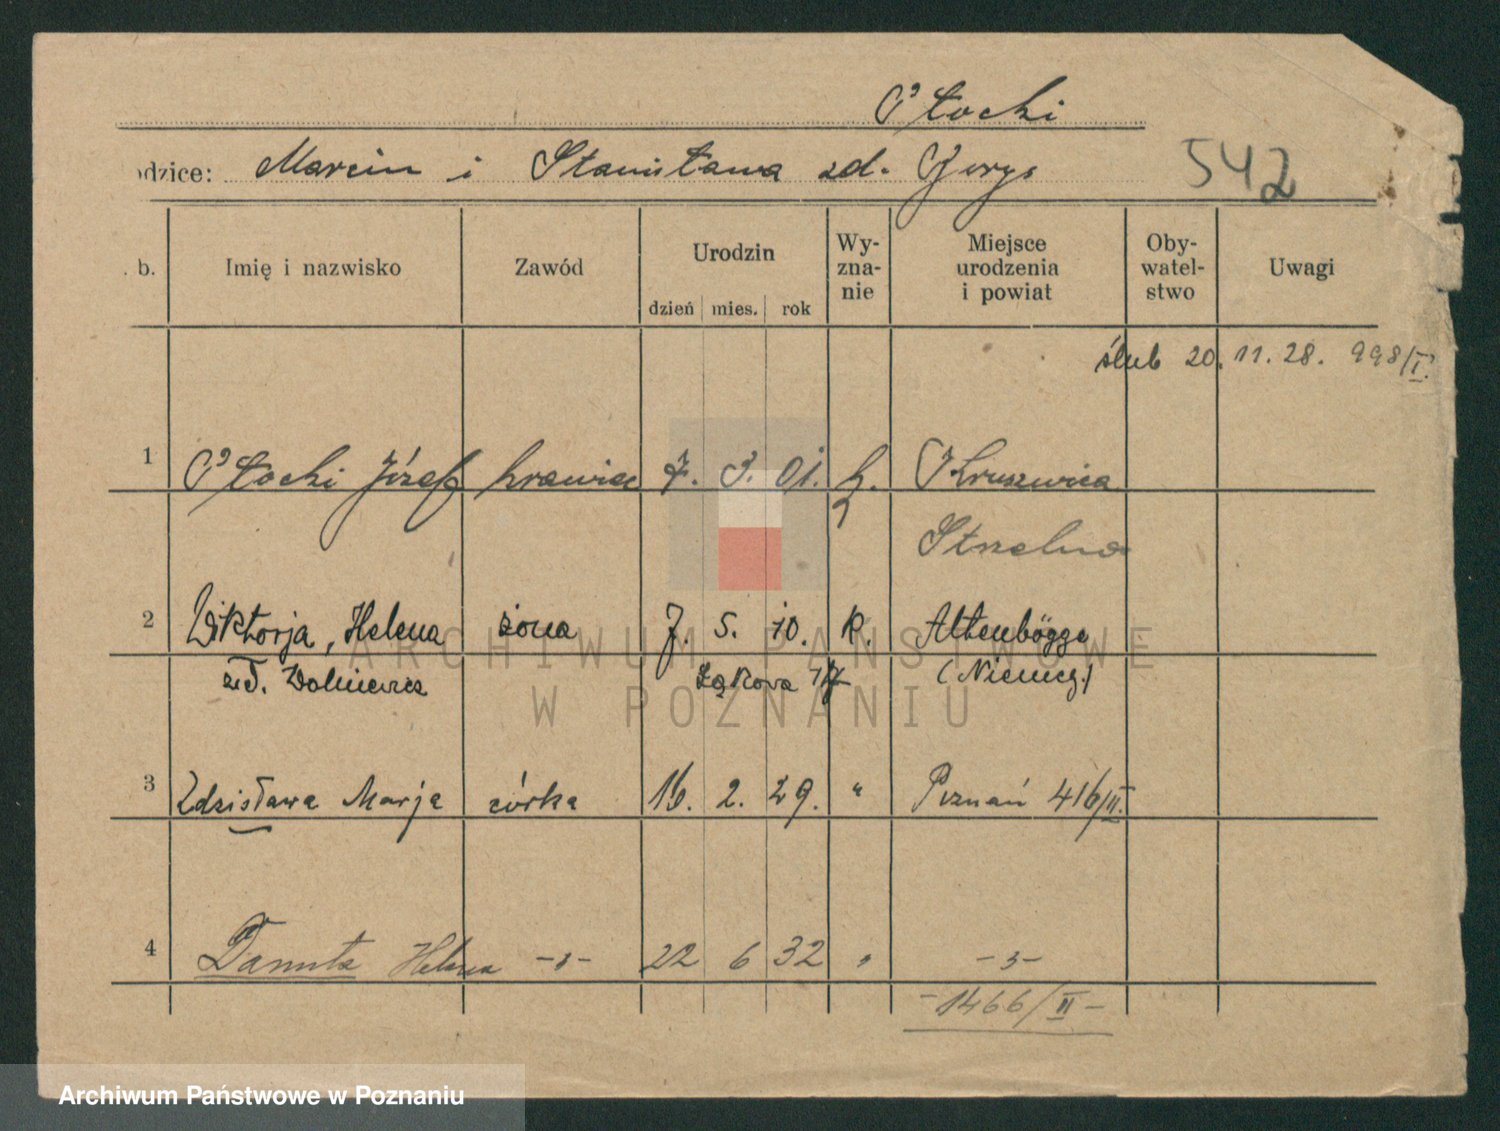 Płocki
odzice: Marcin i Stanisława zd. Gorys
542
. b. Imię i nazwisko Zawód Urodzin dzień mies. rok Wy-zna-nie Miejsce urodzenia i powiat Oby-watel-stwo Uwagi
ślub 20. 11. 28. 998/I.
1 Płocki Józef krawiec 7. 3. 01. k. Kruszwica
Strzelno
2 Wiktorja, Helena żona 7. 5. 10. k Altenbögge
zd. Wolniewicz Łąkowa 17 (Niemcy)
3 Zdzisława Marja córka 16. 2. 29. " Poznań 416/II.
4 Danuta Helena -„- 22 6 32 " -„-
-1466/II-
ARCHIWUM PAŃSTWOWE
W POZNANIU
Archiwum Państwowe w Poznaniu